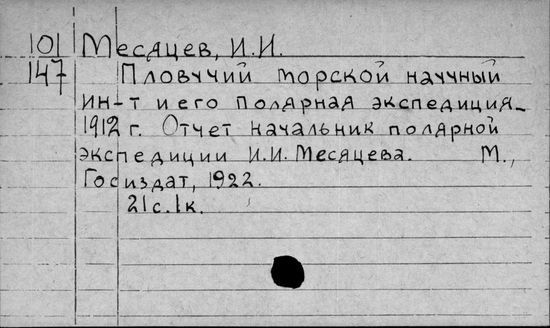 101 Месяцев, И.И.
147 Пловччий торской наччный
ин-т и его полярная экспедиция
1912 г. Отчет начальник полярной
экспедиции И.И. Месяцева. М.,
Госиздат, 1922.
21с. 1к.